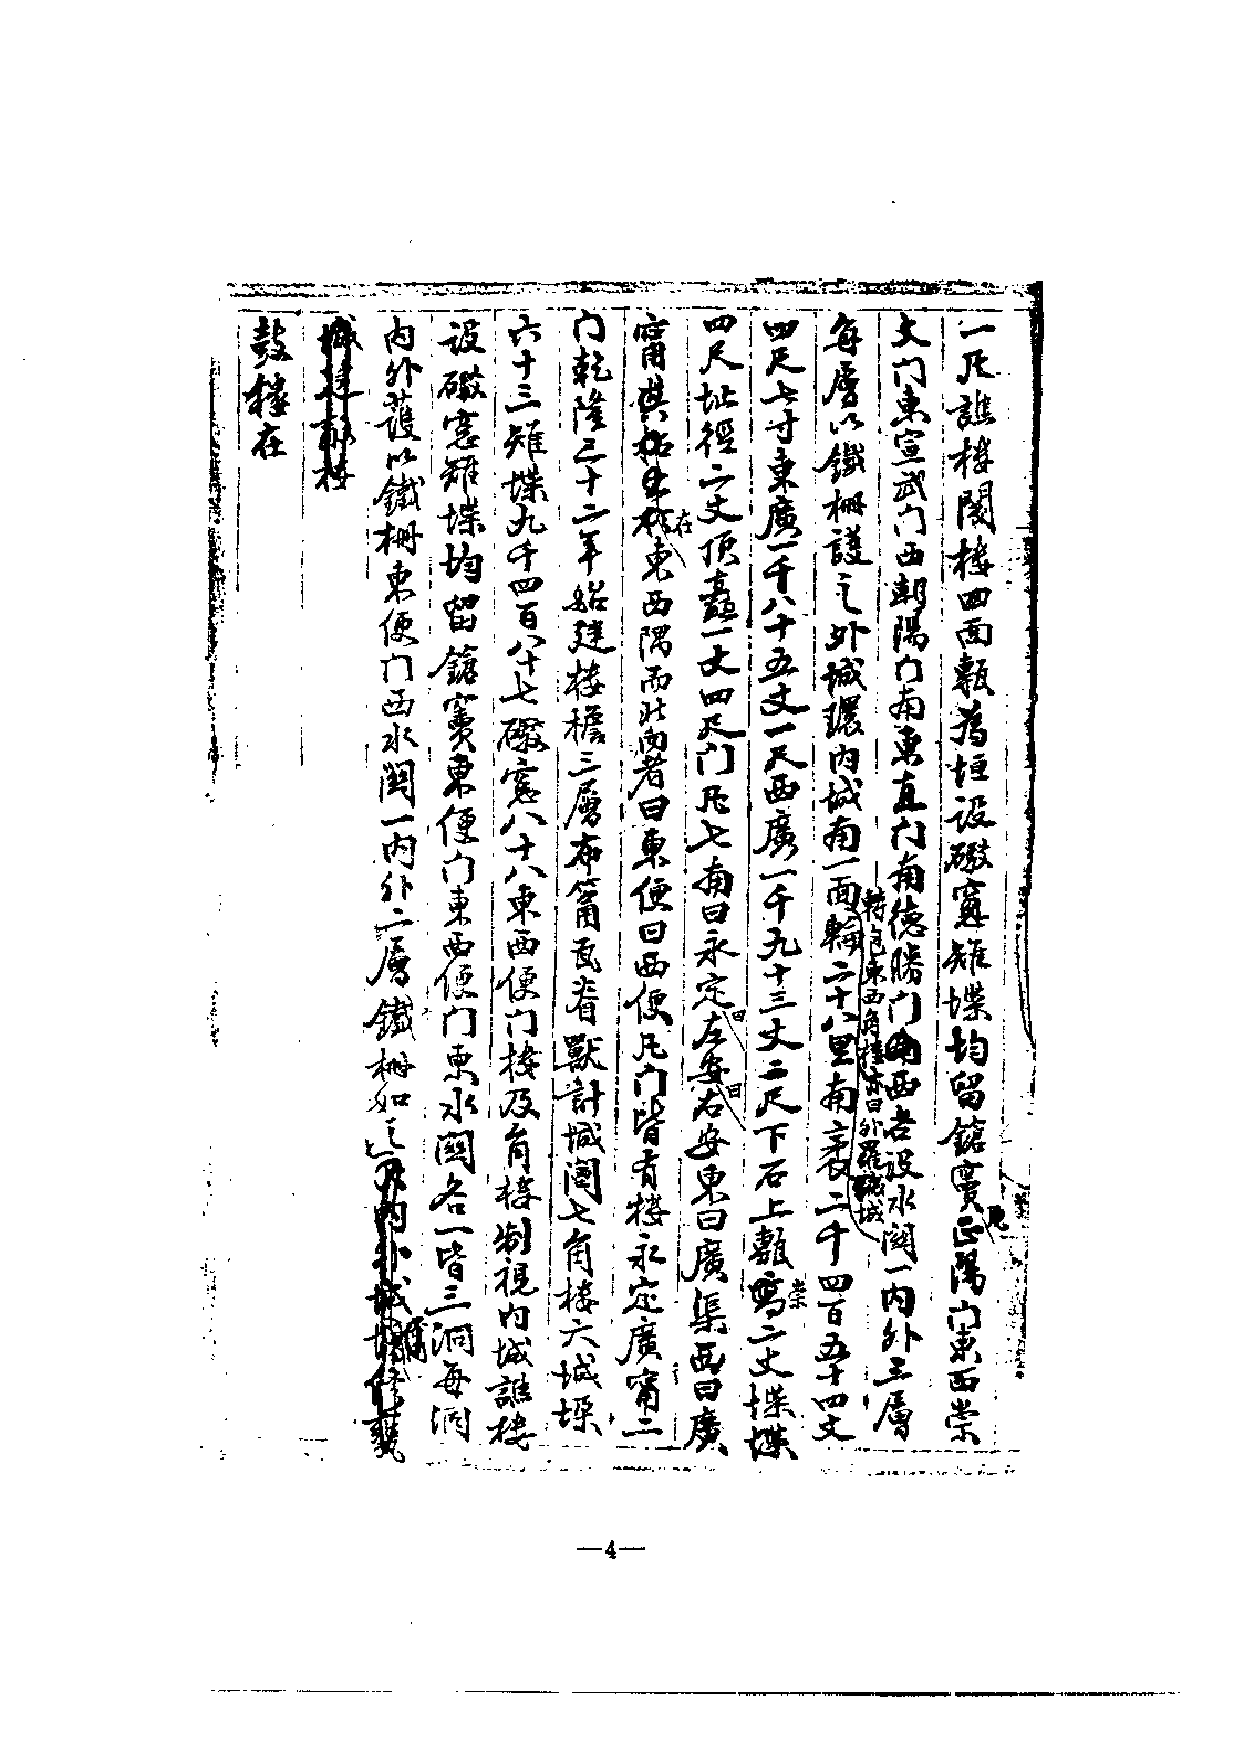 一尺譙樓閣樓四面甎為垣設礮窻雉堞均留鎗竇凡正陽門東西崇
文门東宣武门西朝陽门南東直门南德勝门西者設水闗一内外三層
每層以鐵柵護之外城環内城南一面轉抱東西角樓亦曰外羅城二十八里南袤二千四百五十四丈
四尺七寸東廣一千八十五丈一尺西廣一千九十三丈二尺下石上甎崇二丈堞
四尺址徑二丈頂壹一丈四尺门凡七南曰永定左曰安右曰安東曰廣渠西曰廣
甯其在東西隅而北向者曰東便曰西便凡门皆有樓永定廣甯二
门乾隆三十二年始建樓檐三層布筩瓦脊獸計城闉七角樓六城垜
六十三雉堞九千四百八十七礮窻八十八東西便门樓及角樓制視内城譙樓
設礮窻雉堞均留鎗竇東便门東西便门東水闗各一皆三洞每洞
内外護以鐵柵東便门西水闗一内外二層鐵柵如之
鼓樓在
—4—